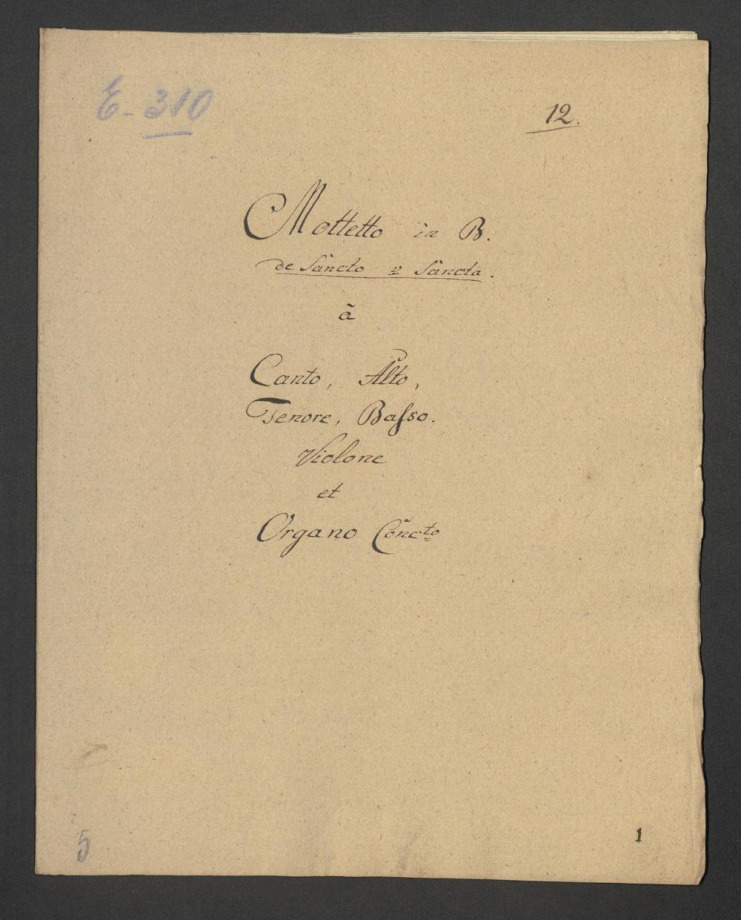 E-310
12.
Mottetto in B.
de Sancto v Sancta.
à
Canto, Alto,
Tenore, Basso.
Violone
et
Organo Conc^to
5
1